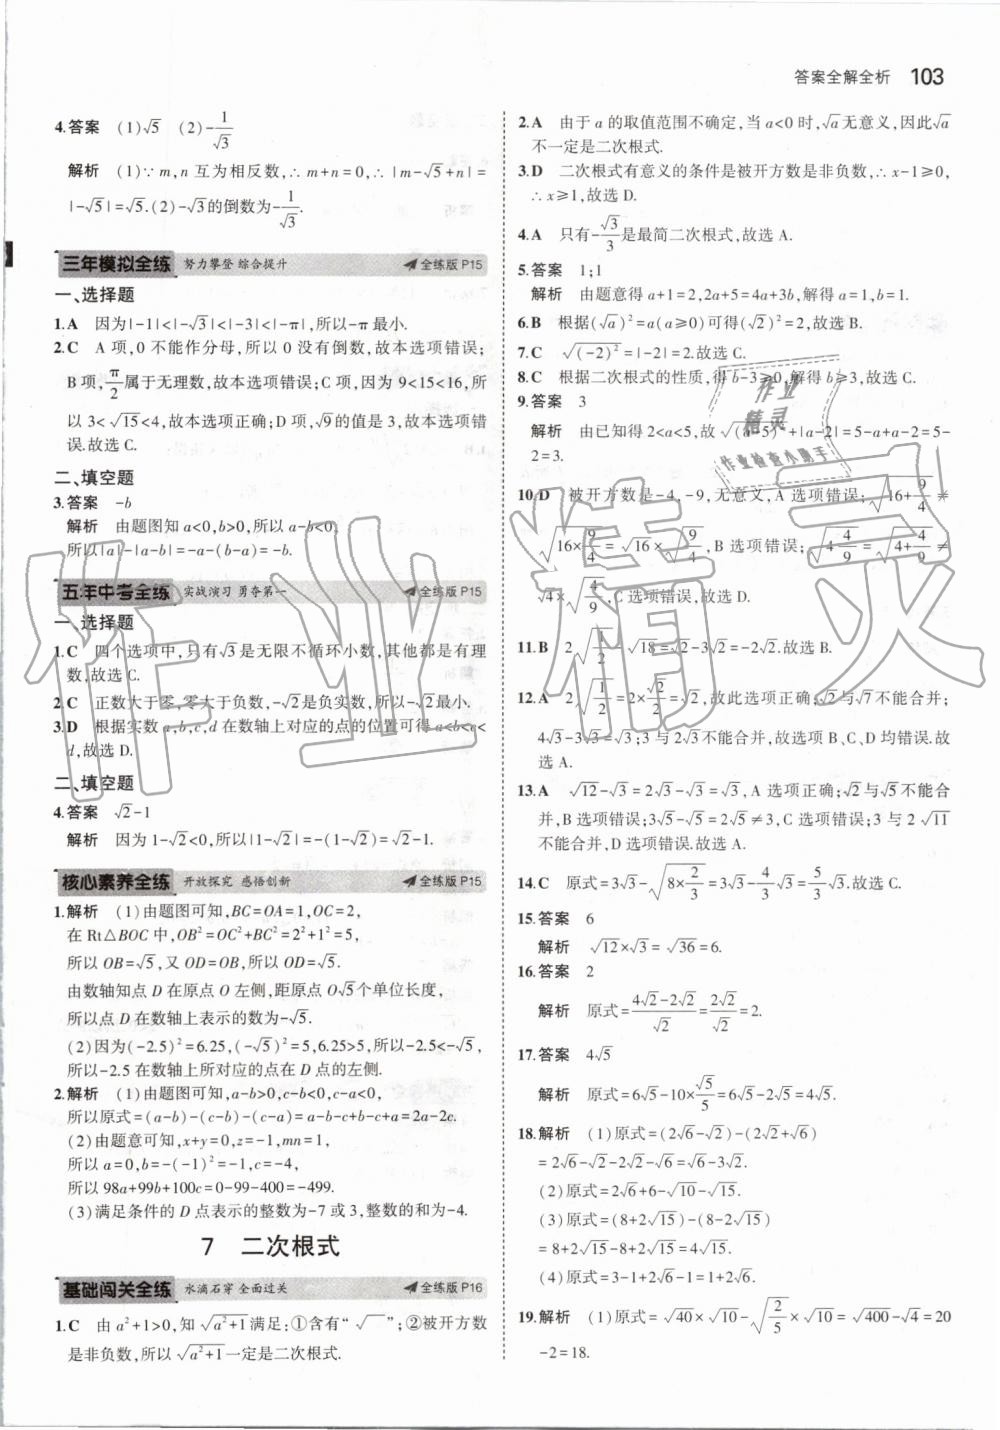 答案全解全析 103
4.答案 (1)√5 (2)-1/√3
解析 (1)∵m,n互为相反数,∴m+n=0,∴|m-√5+n|=
|-√5|=√5.(2)-√3的倒数为-1/√3.
三年模拟全练 努力攀登 综合提升 全练版P15
一、选择题
1.A 因为|-1|<|-√3|<|-3|<|-π|,所以-π最小.
2.C A项,0不能作分母,所以0没有倒数,故本选项错误;
B项,π/2属于无理数,故本选项错误;C项,因为9<15<16,所
以3<√15<4,故本选项正确;D项,√9的值是3,故本选项错
误.故选C.
二、填空题
3.答案 -b
解析 由题图知a<0,b>0,所以a-b<0,
所以|a|-|a-b|=-a-(b-a)=-b.
五年中考全练 实战演习 勇夺第一 全练版P15
一、选择题
1.C 四个选项中,只有√3是无限不循环小数,其他都是有理
数,故选C.
2.C 正数大于零,零大于负数,-√2是负实数,所以-√2最小.
3.D 根据实数a,b,c,d在数轴上对应的点的位置可得a<b<c<
d,故选D.
二、填空题
4.答案 √2-1
解析 因为1-√2<0,所以|1-√2|=-(1-√2)=√2-1.
核心素养全练 开放探究 感悟创新 全练版P15
1.解析 (1)由题图可知,BC=OA=1,OC=2,
在Rt△BOC中,OB²=OC²+BC²=2²+1²=5,
所以OB=√5,又OD=OB,所以OD=√5.
由数轴知点D在原点O左侧,距原点O√5个单位长度,
所以点D在数轴上表示的数为-√5.
(2)因为(-2.5)²=6.25,(-√5)²=5,6.25>5,所以-2.5<-√5,
所以-2.5在数轴上所对应的点在D点的左侧.
2.解析 (1)由题图可知,a-b>0,c-b<0,c-a<0,
所以原式=(a-b)-(c-b)-(c-a)=a-b-c+b-c+a=2a-2c.
(2)由题意可知,x+y=0,z=-1,mn=1,
所以a=0,b=-(-1)²=-1,c=-4,
所以98a+99b+100c=0-99-400=-499.
(3)满足条件的D点表示的整数为-7或3,整数的和为-4.
7 二次根式
基础闯关全练 水滴石穿 全面过关 全练版P16
1.C 由a²+1>0,知√(a²+1)满足:①含有“√ ”;②被开方数
是非负数,所以√(a²+1)一定是二次根式.
2.A 由于a的取值范围不确定,当a<0时,√a无意义,因此√a
不一定是二次根式.
3.D 二次根式有意义的条件是被开方数是非负数,∴x-1≥0,
∴x≥1,故选D.
4.A 只有-√3/3是最简二次根式,故选A.
5.答案 1;1
解析 由题意得a+1=2,2a+5=4a+3b,解得a=1,b=1.
6.B 根据(√a)²=a(a≥0)可得(√2)²=2,故选B.
7.C √((-2)²)=|-2|=2.故选C.
8.C 根据二次根式的性质,得b-3≥0,解得b≥3,故选C.
9.答案 3
解析 由已知得2<a<5,故√((a-5)²)+|a-2|=5-a+a-2=5-
2=3.
10.D 被开方数是-4,-9,无意义,A选项错误;√(16+9/4)≠
√(16×9/4)=√16×√(9/4),B选项错误;√(4 4/9)=√(4+4/9)≠
√4×√(4/9),C选项错误.故选D.
11.B 2√(1/2)-√18=√2-3√2=-2√2.故选B.
12.A 2√(1/2)=2×√2/2=√2,故此选项正确;√2与√7不能合并;
4√3-3√3=√3;3与2√3不能合并,故选项B、C、D均错误.故
选A.
13.A √12-√3=2√3-√3=√3,A选项正确;√2与√5不能合
并,B选项错误;3√5-√5=2√5≠3,C选项错误;3与2√11
不能合并,D选项错误.故选A.
14.C 原式=3√3-√(8×2/3)=3√3-4/3√3=5/3√3.故选C.
15.答案 6
解析 √12×√3=√36=6.
16.答案 2
解析 原式=(4√2-2√2)/√2=2√2/√2=2.
17.答案 4√5
解析 原式=6√5-10×√5/5=6√5-2√5=4√5.
18.解析 (1)原式=(2√6-√2)-(2√2+√6)
=2√6-√2-2√2-√6=√6-3√2.
(2)原式=2√6+6-√10-√15.
(3)原式=(8+2√15)-(8-2√15)
=8+2√15-8+2√15=4√15.
(4)原式=3-1+2√6-√6=2+√6.
19.解析 (1)原式=√40×√10-√(2/5)×√10=√400-√4=20
-2=18.
作业精灵
作业检查小助手
作业精灵